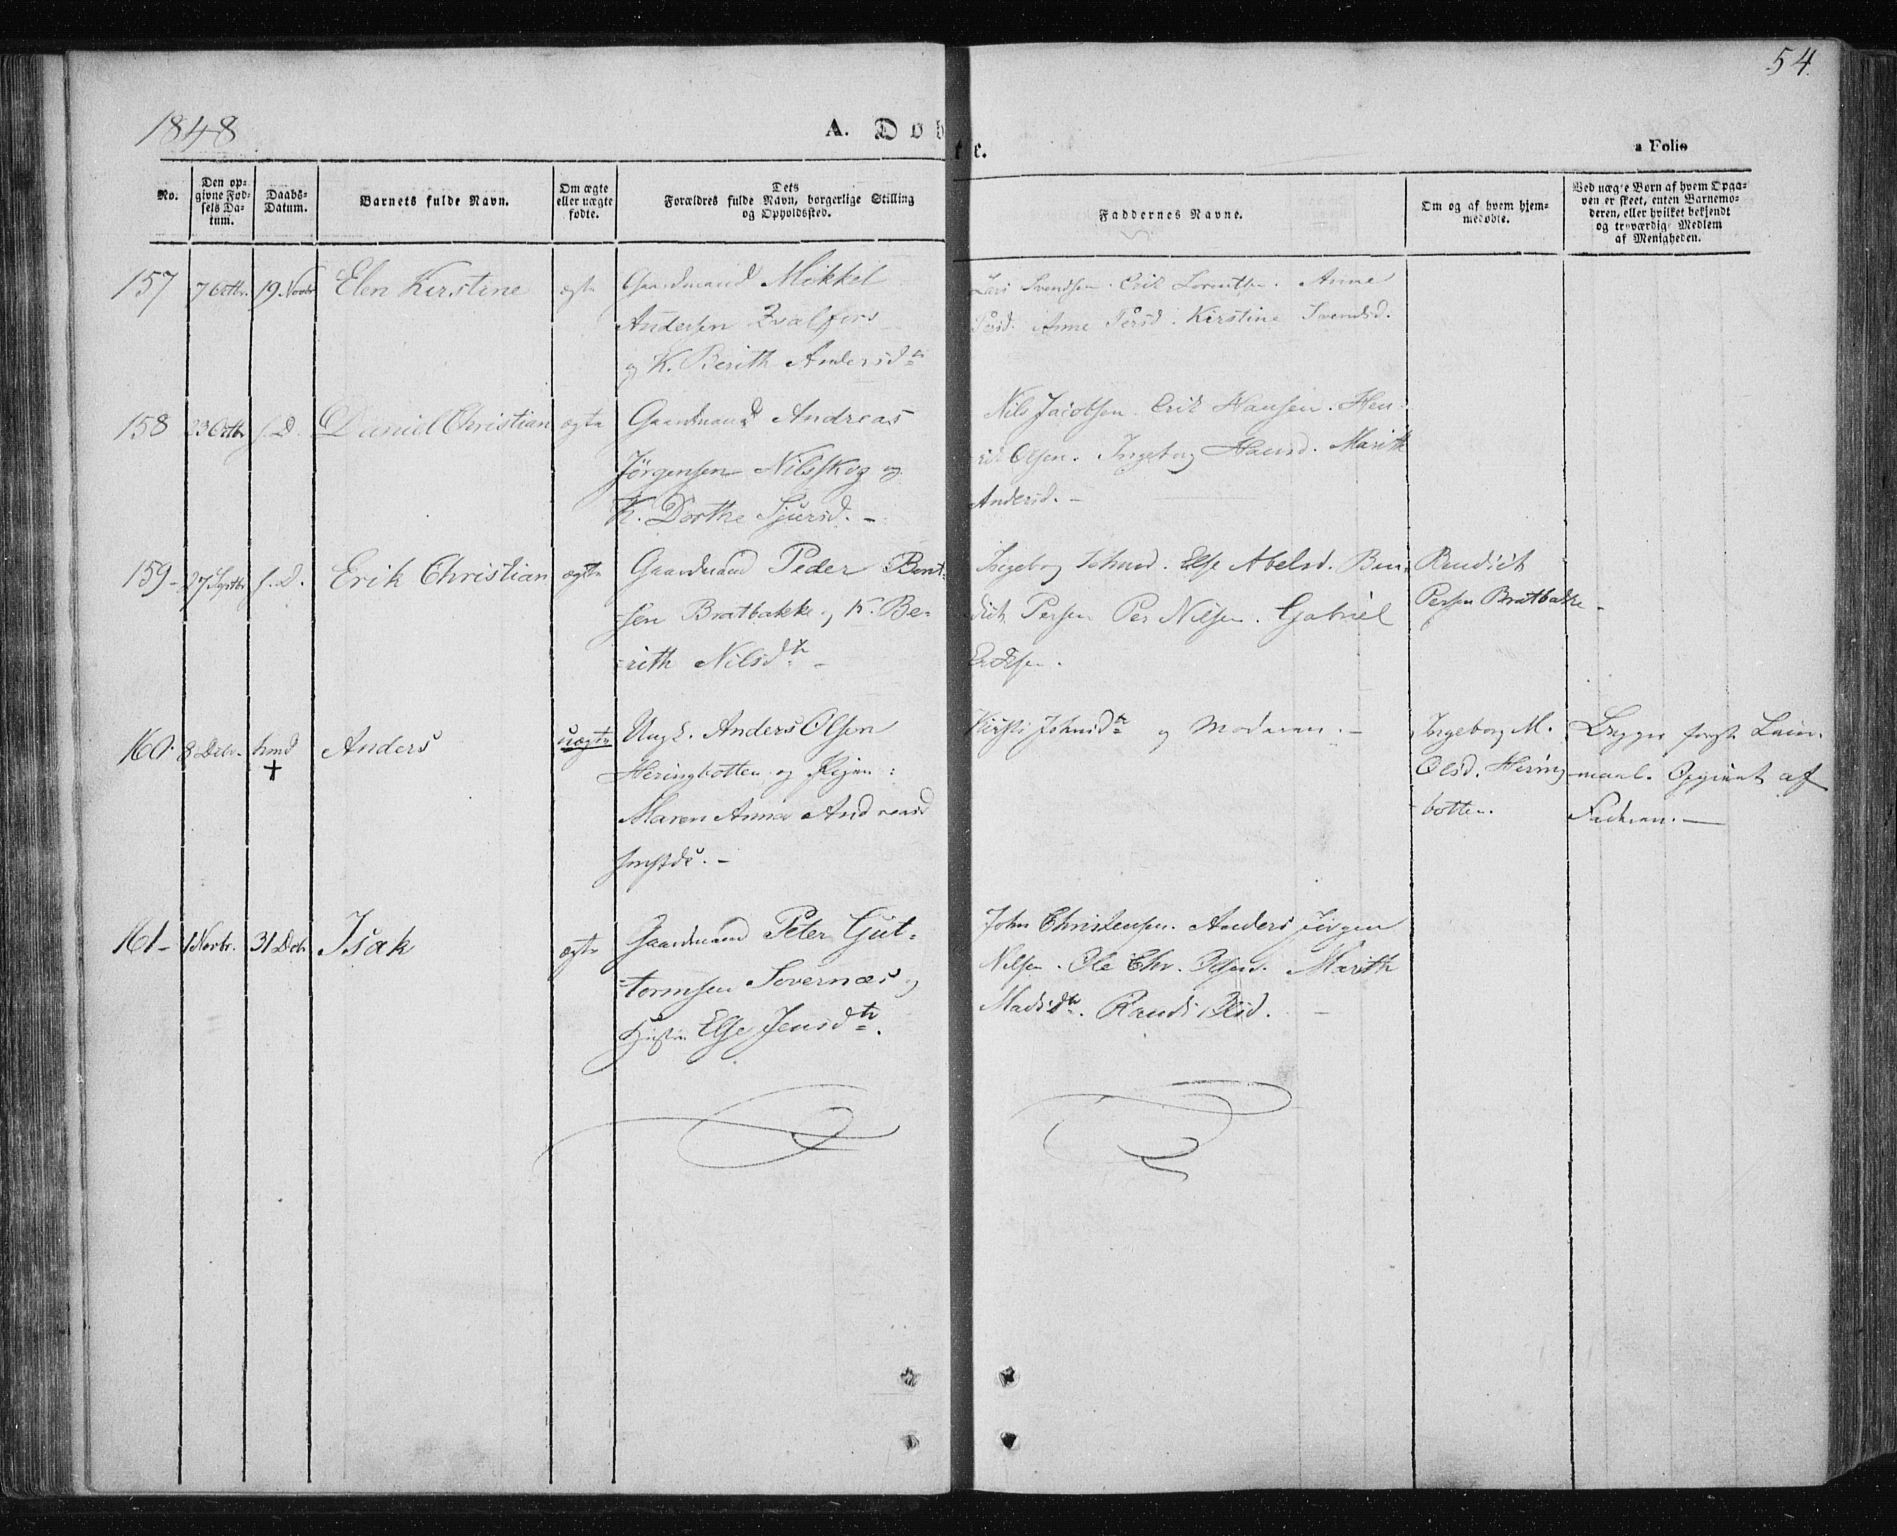 54.
1848
A. Døbte.
a Folio
No.
Den opgivne Fødsels Datum.
Daabs-Datum.
Barnets fulde Navn.
Om ægte eller uægte fødte.
Dets Forældres fulde Navn, borgerlige Stilling og Opholdssted.
Faddernes Navne.
Om og af hvem hjemmedøbte.
Ved uægte Børn af hvem Opgaven er skeet, enten Barnemoderen, eller hvilket bekjendt og troværdig Medlem af Menigheden.
157 7 Octbr. 19. Novbr Elen Kirstine ægte Gaardmand Mikkel
Andersen
og K. Berith Andersd.
Lars Svendsen. Erik Lorentsen. Anne
Persd. Anne Persd. Kirstine Svendsd.
158 23 Octbr s. D. Daniel Christian ægte Gaardmand Andreas
Jørgensen Nilsskog og
K. Dorthe Sjursd. -
Nils Jacobsen. Erik Hansen. Hen-
rik Olsen. Ingeborg Hansd. Marith
Andersd. -
159 - 27 Septbr s. D. Erik Christian ægte Gaardmand Peder Bent-
sen Bratbakke og K. Be-
rith Nilsdtr -
Ingeborg Johnsd. Else Abelsd. Ben-
dict Persen Per Nilsen. Gabriel
Bendict
Persen Bratbakke -
160. 8 Decbr. hmd Anders uægte Ungk. Anders Olsen
+
Heringbotten og Pigen:
Maren Anna Andreasd
sammestds. -
Kirsti Johnsdtr og Moderen. -
Ingeborg M.
Olsd. Hering
botten.
Begges første Leier-
maal. Opgivet af
Faderen. -
161 - 1 Novbr. 31 Decbr Isak ægte Gaardmand Peter Gut-
tormsen Sovernæs og
Hustru Else Jensdtr.
John Christensen. Anders Jørgen
Nilsen. Ole Chr. Olsen. Marith
Madsdtr. Randi Olsd. -